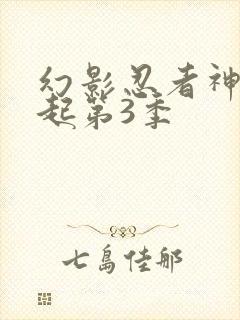 幻影忍者神
起第3季
七島佳那